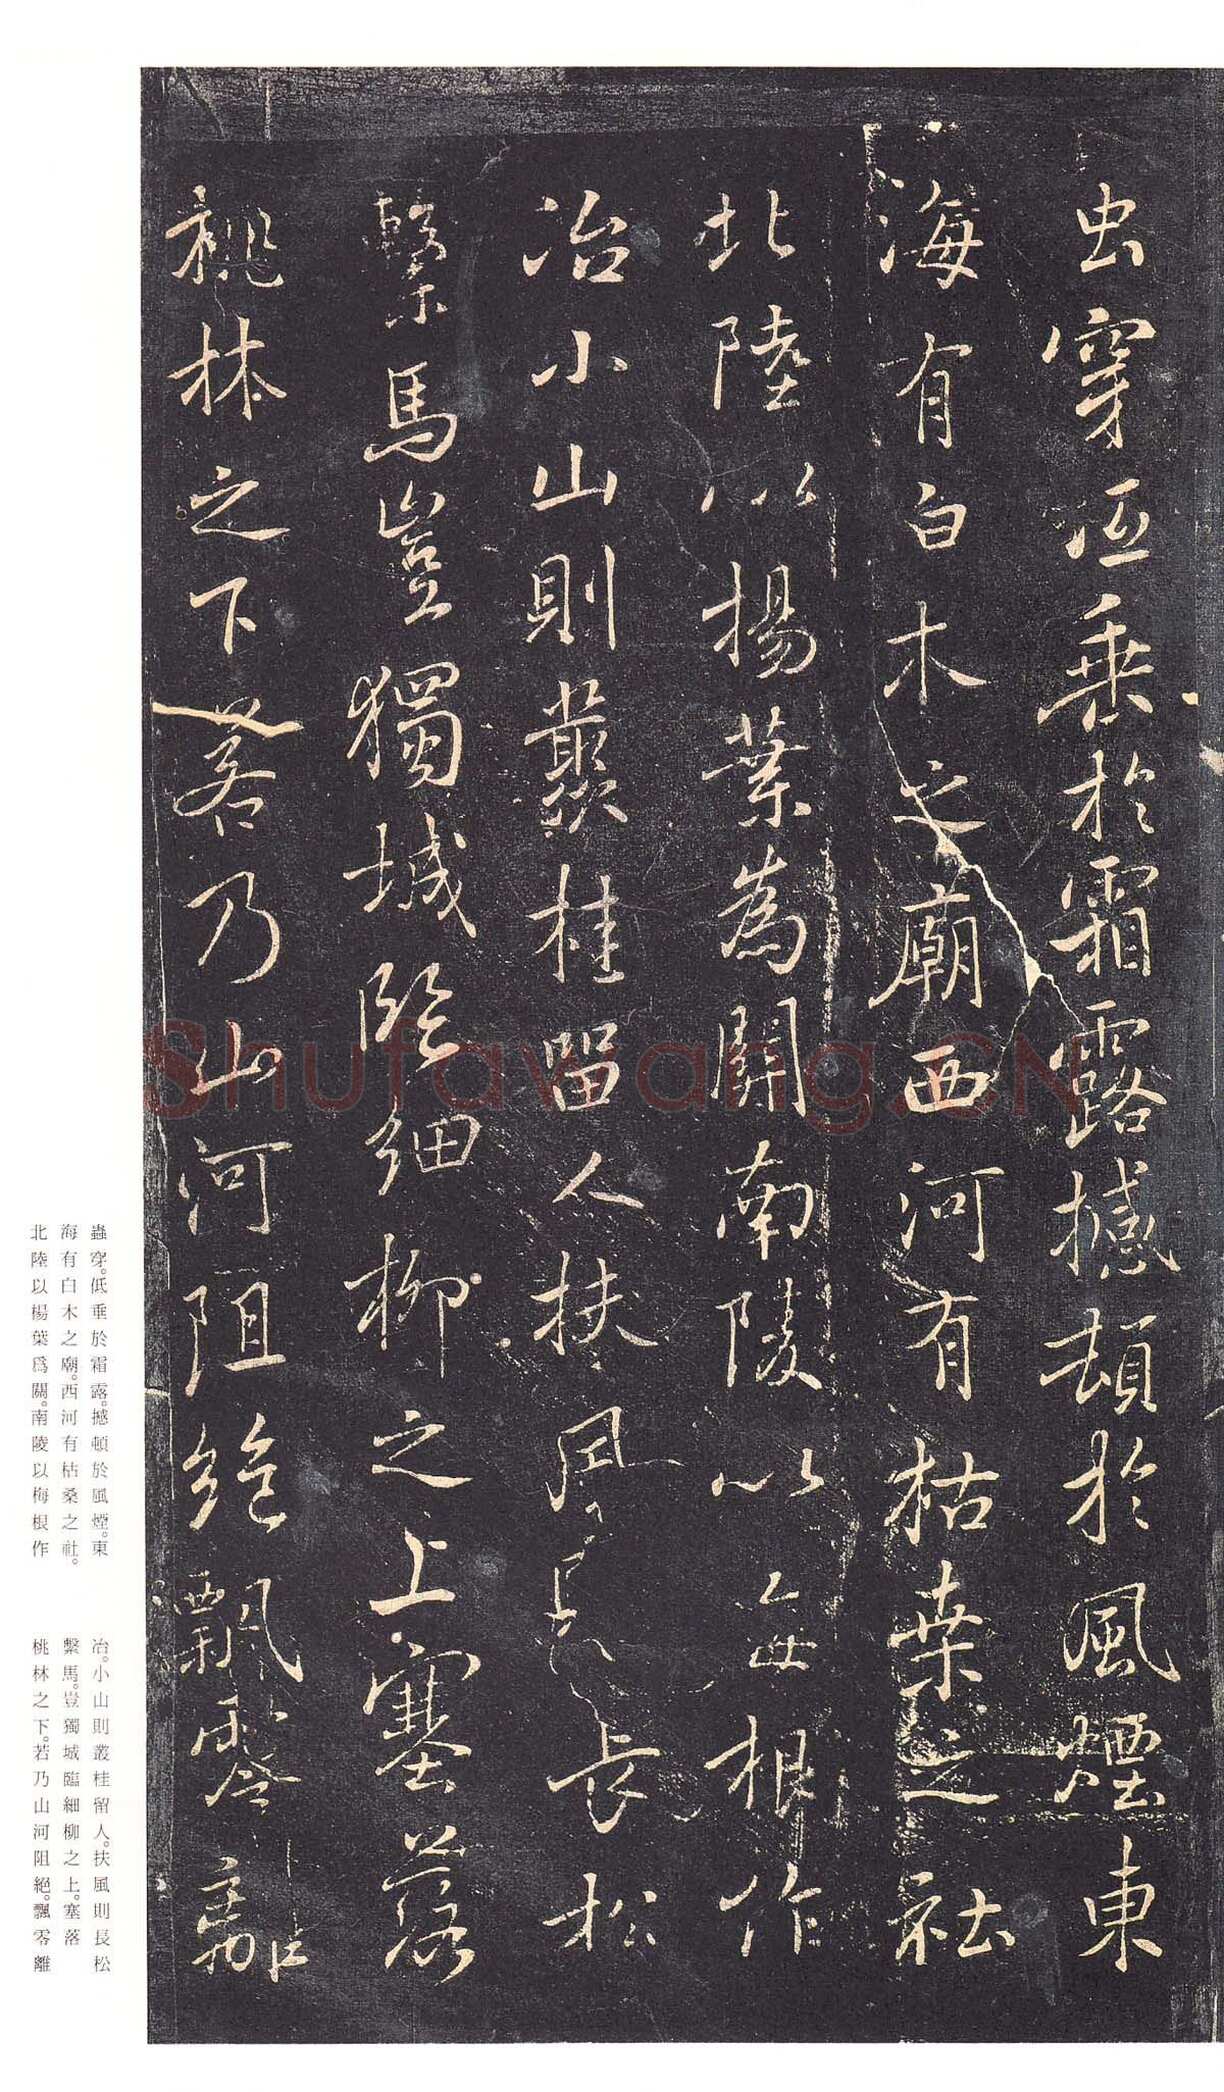 虫穿低垂於霜露撼頓於風煙東
海有白木之廟西河有枯桑之社
北陸以揚葉為關南陵以每根作
冶小山則叢桂留人扶風則長松
繫馬豈獨城臨細柳之上塞落
桃林之下若乃山河阻絕飄零離
蟲穿。低垂於霜露。撼頓於風煙。東
海有白木之廟。西河有枯桑之社。
北陸以楊葉爲關。南陵以梅根作
冶。小山則叢桂留人。扶風則長松
繫馬。豈獨城臨細柳之上。塞落
桃林之下。若乃山河阻絕。飄零離
Shufawang.CN